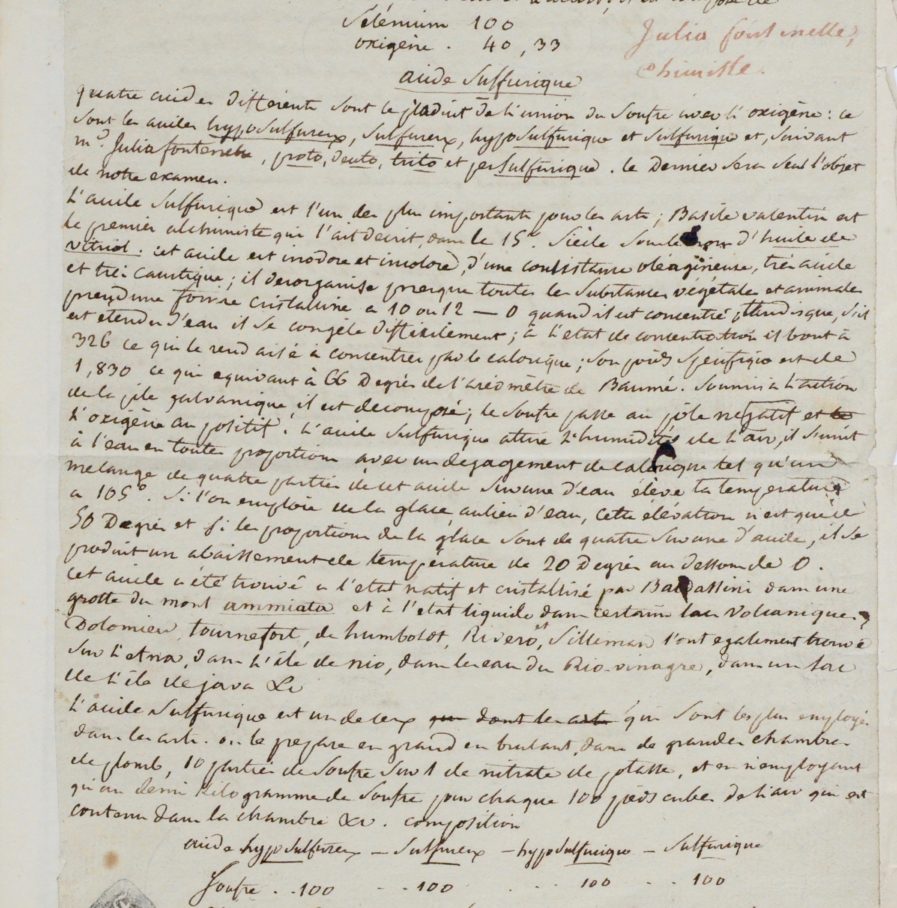 Sélénium 100
oxigène . 40,33
Julia fontenelle,
chimiste.
acide Sulfurique
quatre acides différents sont le produit de l'union du Soufre avec l'oxigène : ce
sont les acides hyposulfureux, sulfureux, hyposulfurique et sulfurique et, suivant
mr. Julia fontenelle, proto, deuto, trito et per sulfurique. le dernier sera seul l'objet
de notre examen.
L'acide Sulfurique est l'un des plus importants pour les arts ; Basile valentin est
le premier alchimiste qui l'ait décrit, dans le 15e. Siècle sous le nom d'huile de
vitriol. cet acide est inodore et incolore, d'une consistance oléagineuse, très acide
et très caustique ; il désorganise presque toutes les substances végétales et animales
prend une forme cristalline a 10 ou 12 — 0 quand il est concentré, tandis que, s'il
est étendu d'eau il se congèle difficilement ; à l'état de concentration il bout à
326 ce qui le rend aisé à concentrer par le calorique ; son poids spécifique est de
1,830 ce qui équivaut à 66 Degrés de l'aréomètre de Baumé. Soumis à l'action
de la pile galvanique, il est décomposé ; le soufre passe au pôle négatif et
l'oxigène au positif. L'acide Sulfurique attire l'humidité de l'air, il s'unit
à l'eau en toute proportion avec un dégagement de calorique tel qu'un
mélange de quatre parties de cet acide sur une d'eau élève la température
a 105°. Si l'on emploie de la glace au lieu d'eau, cette élévation n'est que de
50 Degrés et si les proportions de la glace sont de quatre sur une d'acide, il se
produit un abaissement de température de 20 Degrés au dessous de 0.
cet acide a été trouvé a l'état natif et cristallisé par Baldassini dans une
grotte du mont ammiata et à l'état liquide dans certains lacs volcaniques,
Dolomieu, tournefort, de humboldt, Rivero, Silleman l'ont également trouvé
sur l'etna, dans l'île de nio, dans les eaux du Rio vinagre, dans un lac
de l'île de java &c
L'acide Sulfurique est un de ceux dont les arts qui sont les plus employés
dans les arts. on le prépare en grand en brulant, dans de grandes chambres
de plomb, 10 parties de soufre sur 1 de nitrate de potasse, et en n'employant
qu'un demi kilogramme de soufre pour chaque 100 pieds cubes de l'air qui est
contenu dans la chambre &c. composition
acide hyposulfureux — sulfureux — hyposulfurique — sulfurique
Soufre . . 100 . . 100 . . 100 . . 100